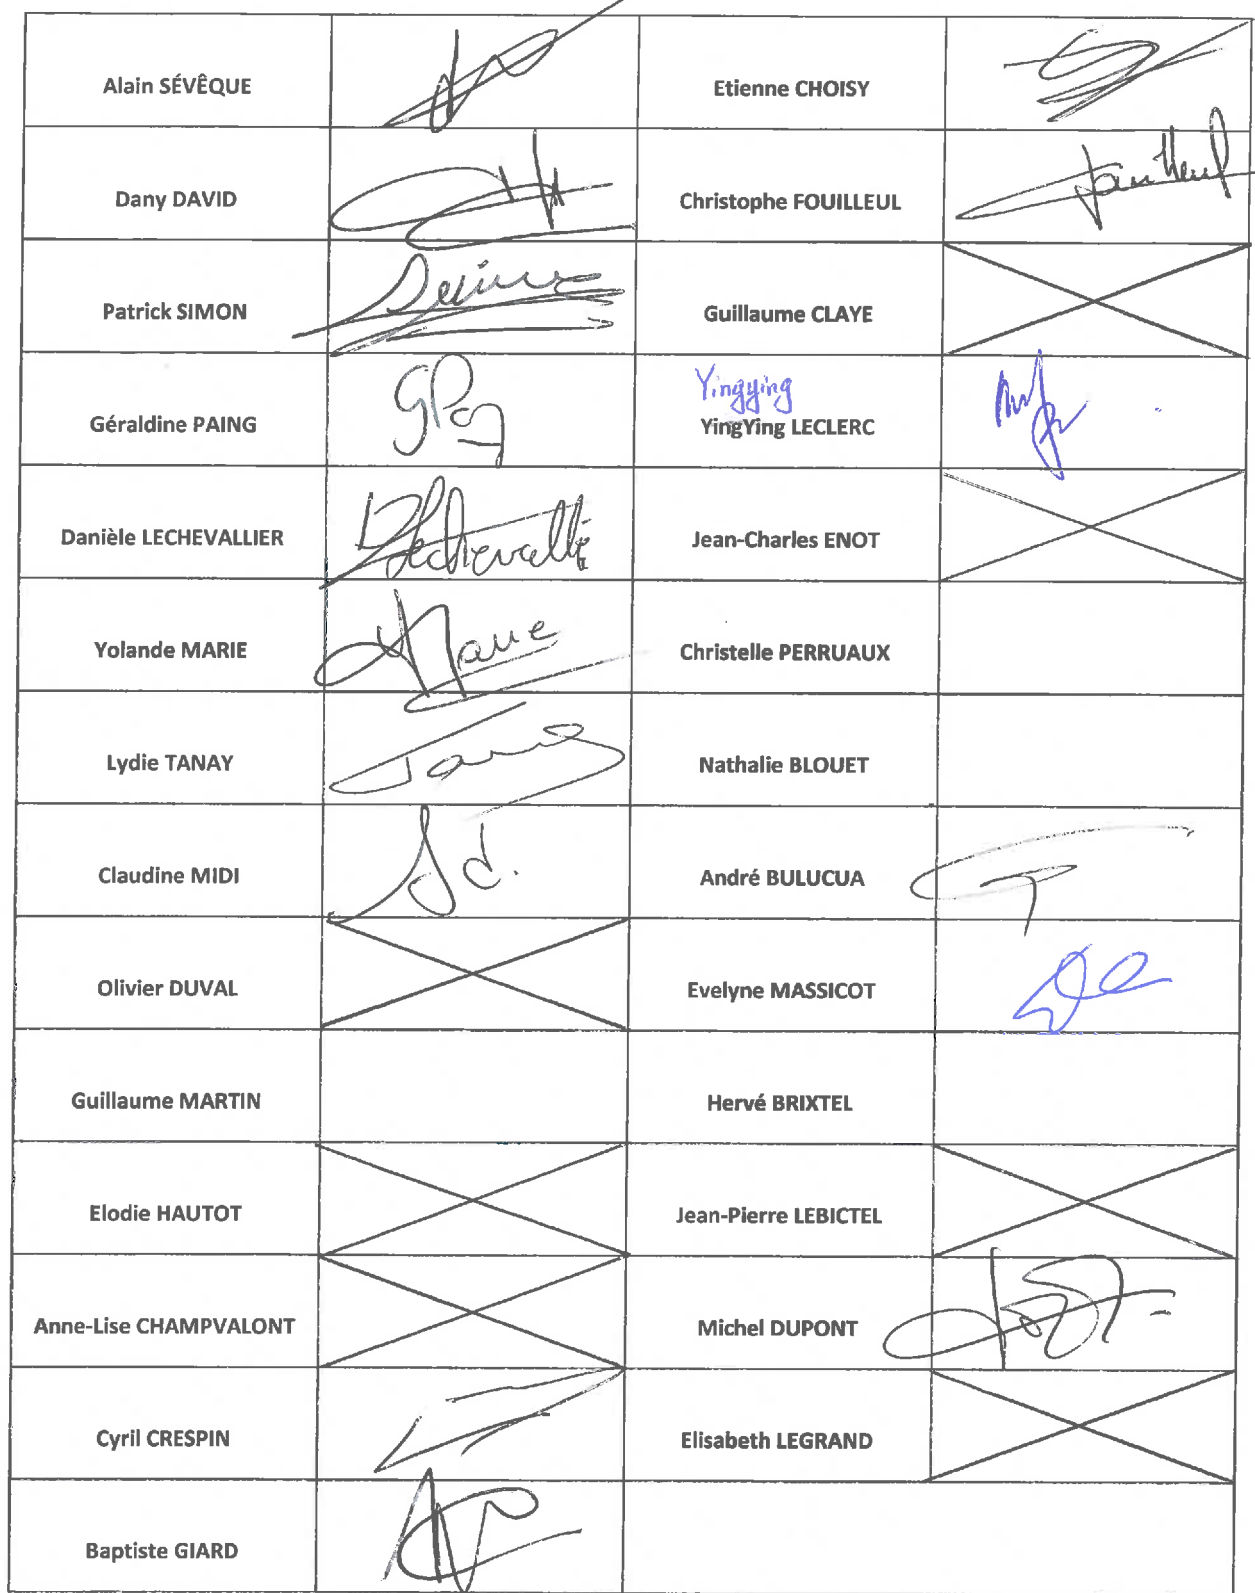 Alain SÉVÊQUE
Etienne CHOISY
Dany DAVID
Christophe FOUILLEUL
Fouilleul
Patrick SIMON
Guillaume CLAYE
Géraldine PAING
Yingying
YingYing LECLERC
Danièle LECHEVALLIER
Jean-Charles ENOT
Yolande MARIE
Marie
Christelle PERRUAUX
Lydie TANAY
Nathalie BLOUET
Claudine MIDI
André BULUCUA
Olivier DUVAL
Evelyne MASSICOT
Guillaume MARTIN
Hervé BRIXTEL
Elodie HAUTOT
Jean-Pierre LEBICTEL
Anne-Lise CHAMPVALONT
Michel DUPONT
Cyril CRESPIN
Elisabeth LEGRAND
Baptiste GIARD